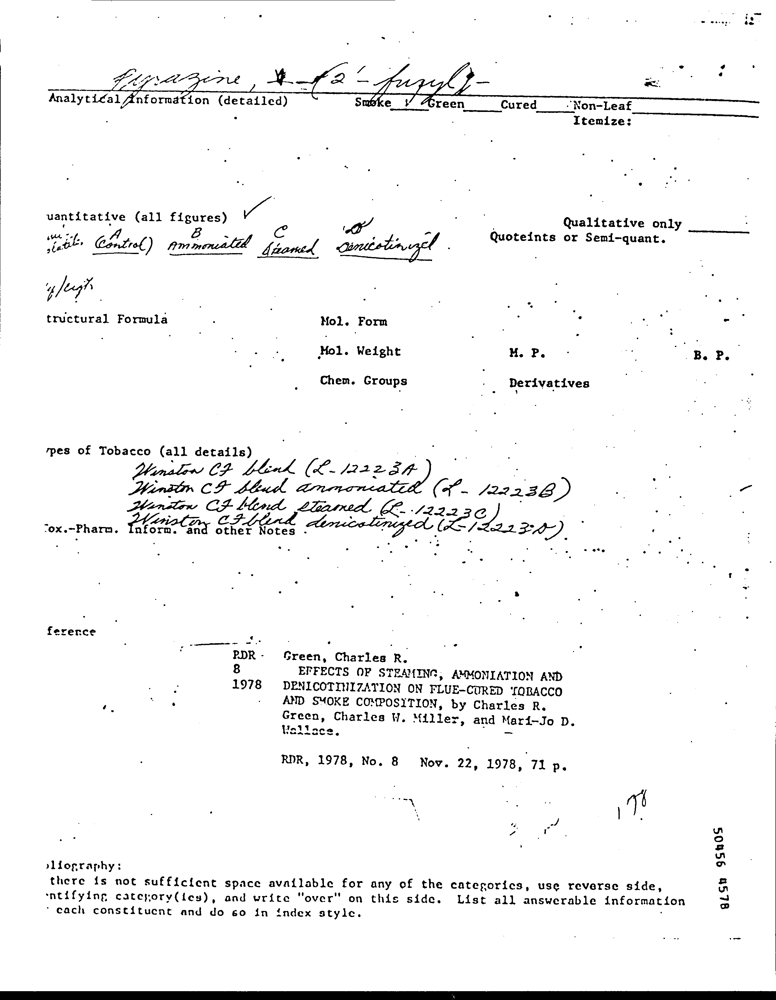 Pyrazine, (2'-furyl)-
Analytical Information (detailed) Smoke ✓ Green Cured Non-Leaf
Itemize:
uantitative (all figures) ✓ Qualitative only
A B C D Quoteints or Semi-quant.
(Control) Ammoniated Steamed Denicotinized
tructural Formula Mol. Form
Mol. Weight M. P. B. P.
Chem. Groups Derivatives
ypes of Tobacco (all details)
Winston CF blend (L-12223A)
Winston CF blend ammoniated (L-12223B)
Winston CF blend steamed (L-12223C)
Winston CF blend denicotinized (L-12223-D)
ox.-Pharm. Inform. and other Notes
ference
RDR Green, Charles R.
8 EFFECTS OF STEAMING, AMMONIATION AND
1978 DENICOTINIZATION ON FLUE-CURED TOBACCO
AND SMOKE COMPOSITION, by Charles R.
Green, Charles W. Miller, and Mari-Jo D.
Wallace.
RDR, 1978, No. 8 Nov. 22, 1978, 71 p.
50456 4578
liography:
there is not sufficient space available for any of the categories, use reverse side,
ntifying category(ies), and write "over" on this side. List all answerable information
each constituent and do so in index style.